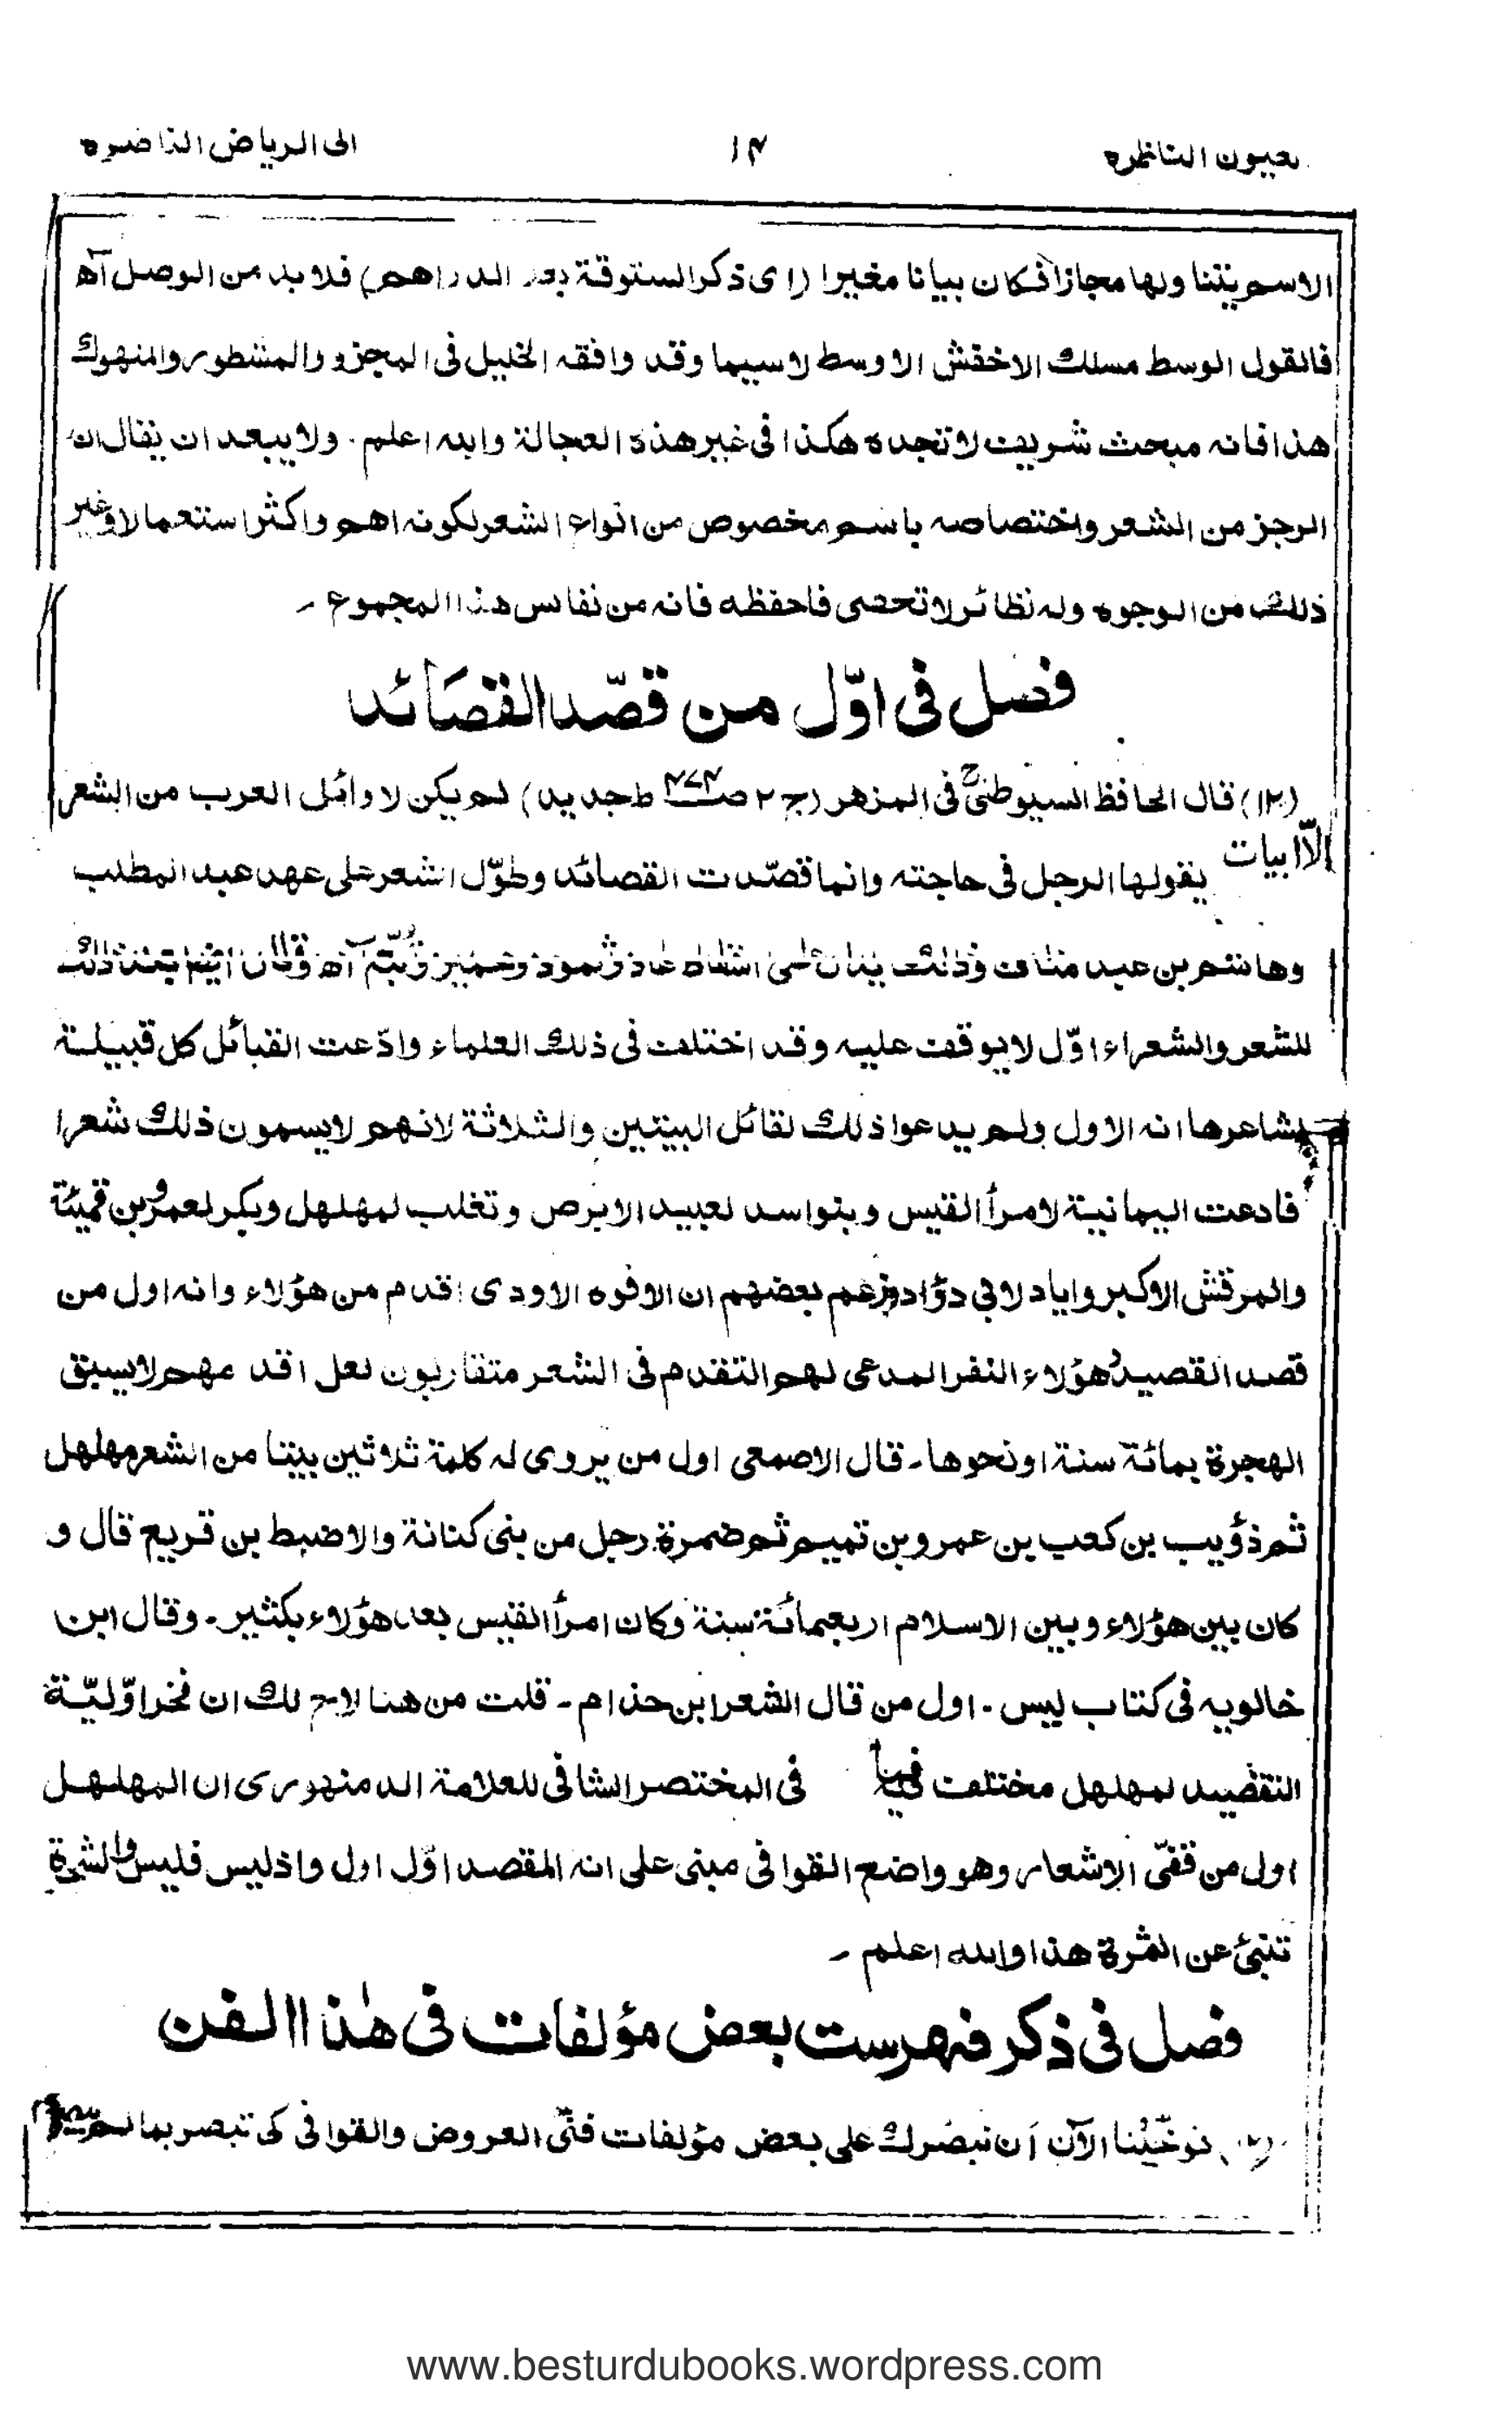 بعيون الناظره ١٤ الى الرياض الناضره
الاسم يتناولها مجازا فكان بيانا مغيرا (اى ذكر الستوقة بعد الدراهم) فلا بد من الوصل آه
فالقول الوسط مسلك الاخفش الاوسط لاسيما وقد وافقه الخليل فى المجزو والمشطور والمنهوك
هذا فانه مبحث شريف لا تجده هكذا فى غير هذه العجالة والله اعلم. ولا يبعد ان يقال ان
الرجز من الشعر واختصاصه باسم مخصوص من انواع الشعر لكونه اهم واكثر استعمالا وغير
ذلك من الوجوه وله نظائر لا تحصى فاحفظه فانه من نفائس هذا المجموع۔
فصل فى اوّل من قصّد القصَائد
(١٢) قال الحافظ السيوطىؒ فى المزهر (ج ٢ صـ٤٧٤ ط جديد) لم يكن لاوائل العرب من الشعر
الّا ابيات يقولها الرجل فى حاجته وانما قصّدت القصائد وطوّل الشعر على عهد عبد المطلب
وهاشم بن عبد مناف وذلك يدل على اسقاط عاد وثمود وحمير وتُبَّع آه وقال ايضا بعد ذلك
للشعر والشعراء اوّل لا يوقف عليه وقد اختلف فى ذلك العلماء وادّعت القبائل كل قبيلة
لشاعرها انه الاول ولم يدعوا ذلك لقائل البيتين والثلاثة لانهم لا يسمون ذلك شعرا
فادعت اليمانية لامرأ القيس وبنو اسد لعبيد الابرص وتغلب لمهلهل وبكر لعمرو بن قميئة
والمرقش الاكبر واياد لابى دؤاد وزعم بعضهم ان الافوه الاودى اقدم من هؤلاء وانه اول من
قصد القصيد وهؤلاء النفر المدعى لهم التقدم فى الشعر متقاربون لعل اقدمهم لا يسبق
الهجرة بمائة سنة او نحوها۔ قال الاصمعى اول من يروى له كلمة ثلاثين بيتا من الشعر مهلهل
ثم ذؤيب بن كعب بن عمرو بن تميم ثم ضمرة رجل من بنى كنانة والاضبط بن قريع قال و
كان بين هؤلاء وبين الاسلام اربعمائة سنة وكان امرأ القيس بعد هؤلاء بكثير۔ وقال ابن
خالويه فى كتاب ليس۔ اول من قال الشعر ابن حذام۔ قلت من هنا لاح لك ان فخر اوّليّة
التقصيد لمهلهل مختلف فيها فى المختصر الشافى للعلامة الدمنهورى ان المهلهل
اول من قفّى الاشعار وهو واضع القوافى مبنى على انه المقصد اوّل اول واذ ليس فليس والشجرة
تنبئ عن الثمرة هذا والله اعلم۔
فصل فى ذكر فهرست بعض مؤلفات فى هٰذا الفن
توخّيْنا الآن اَن نبصّرك على بعض مؤلفات فنّى العروض والقوافى كى تبصر بما لم
www.besturdubooks.wordpress.com